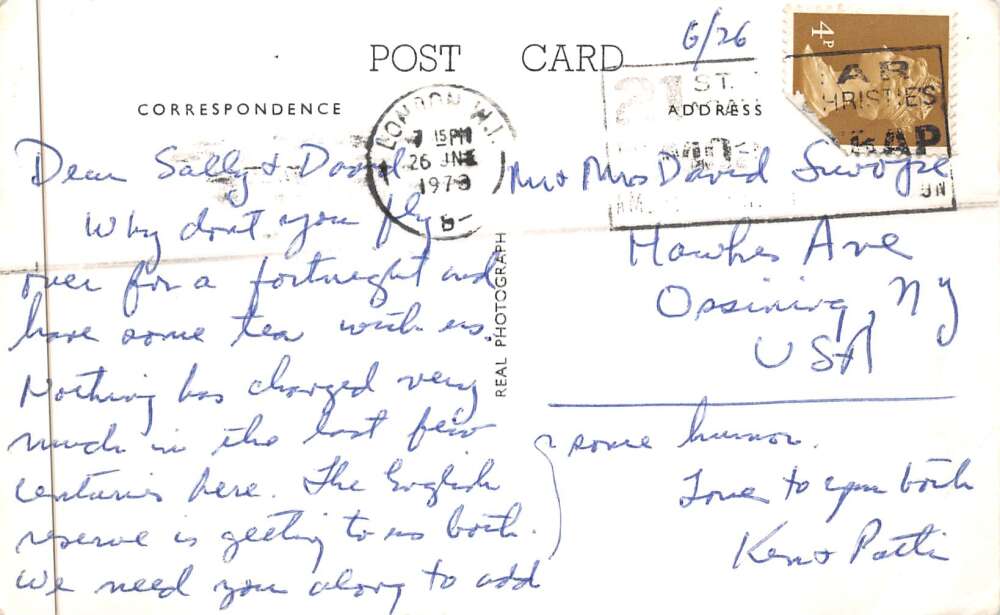 POST CARD
6/26
4P
CORRESPONDENCE
ADDRESS
LONDON W.1.
7 15PM
26 JNE
1973
ST.
Dear Sally & David
Why don't you fly
over for a fortnight and
have some tea with us.
Nothing has changed very
much in the last few
centuries here. The English
reserve is getting to us both.
We need you along to add
some humor.
Love to you both
Ken & Patti
REAL PHOTOGRAPH
Mr & Mrs David Swope
Hawkes Ave
Ossining, NY
USA